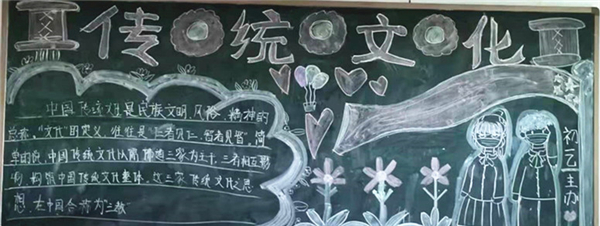 传统文化
中国传统文化是民族文明、风俗、精神的
总称。"文化"的定义，往往是"仁者见仁、智者见智"，简
单的说，中国传统文化以儒、佛、道三家为主干，三者相互影
响，构成中国传统文化整体，这三家传统文化之思
想，在中国合称为三教
初二
主办